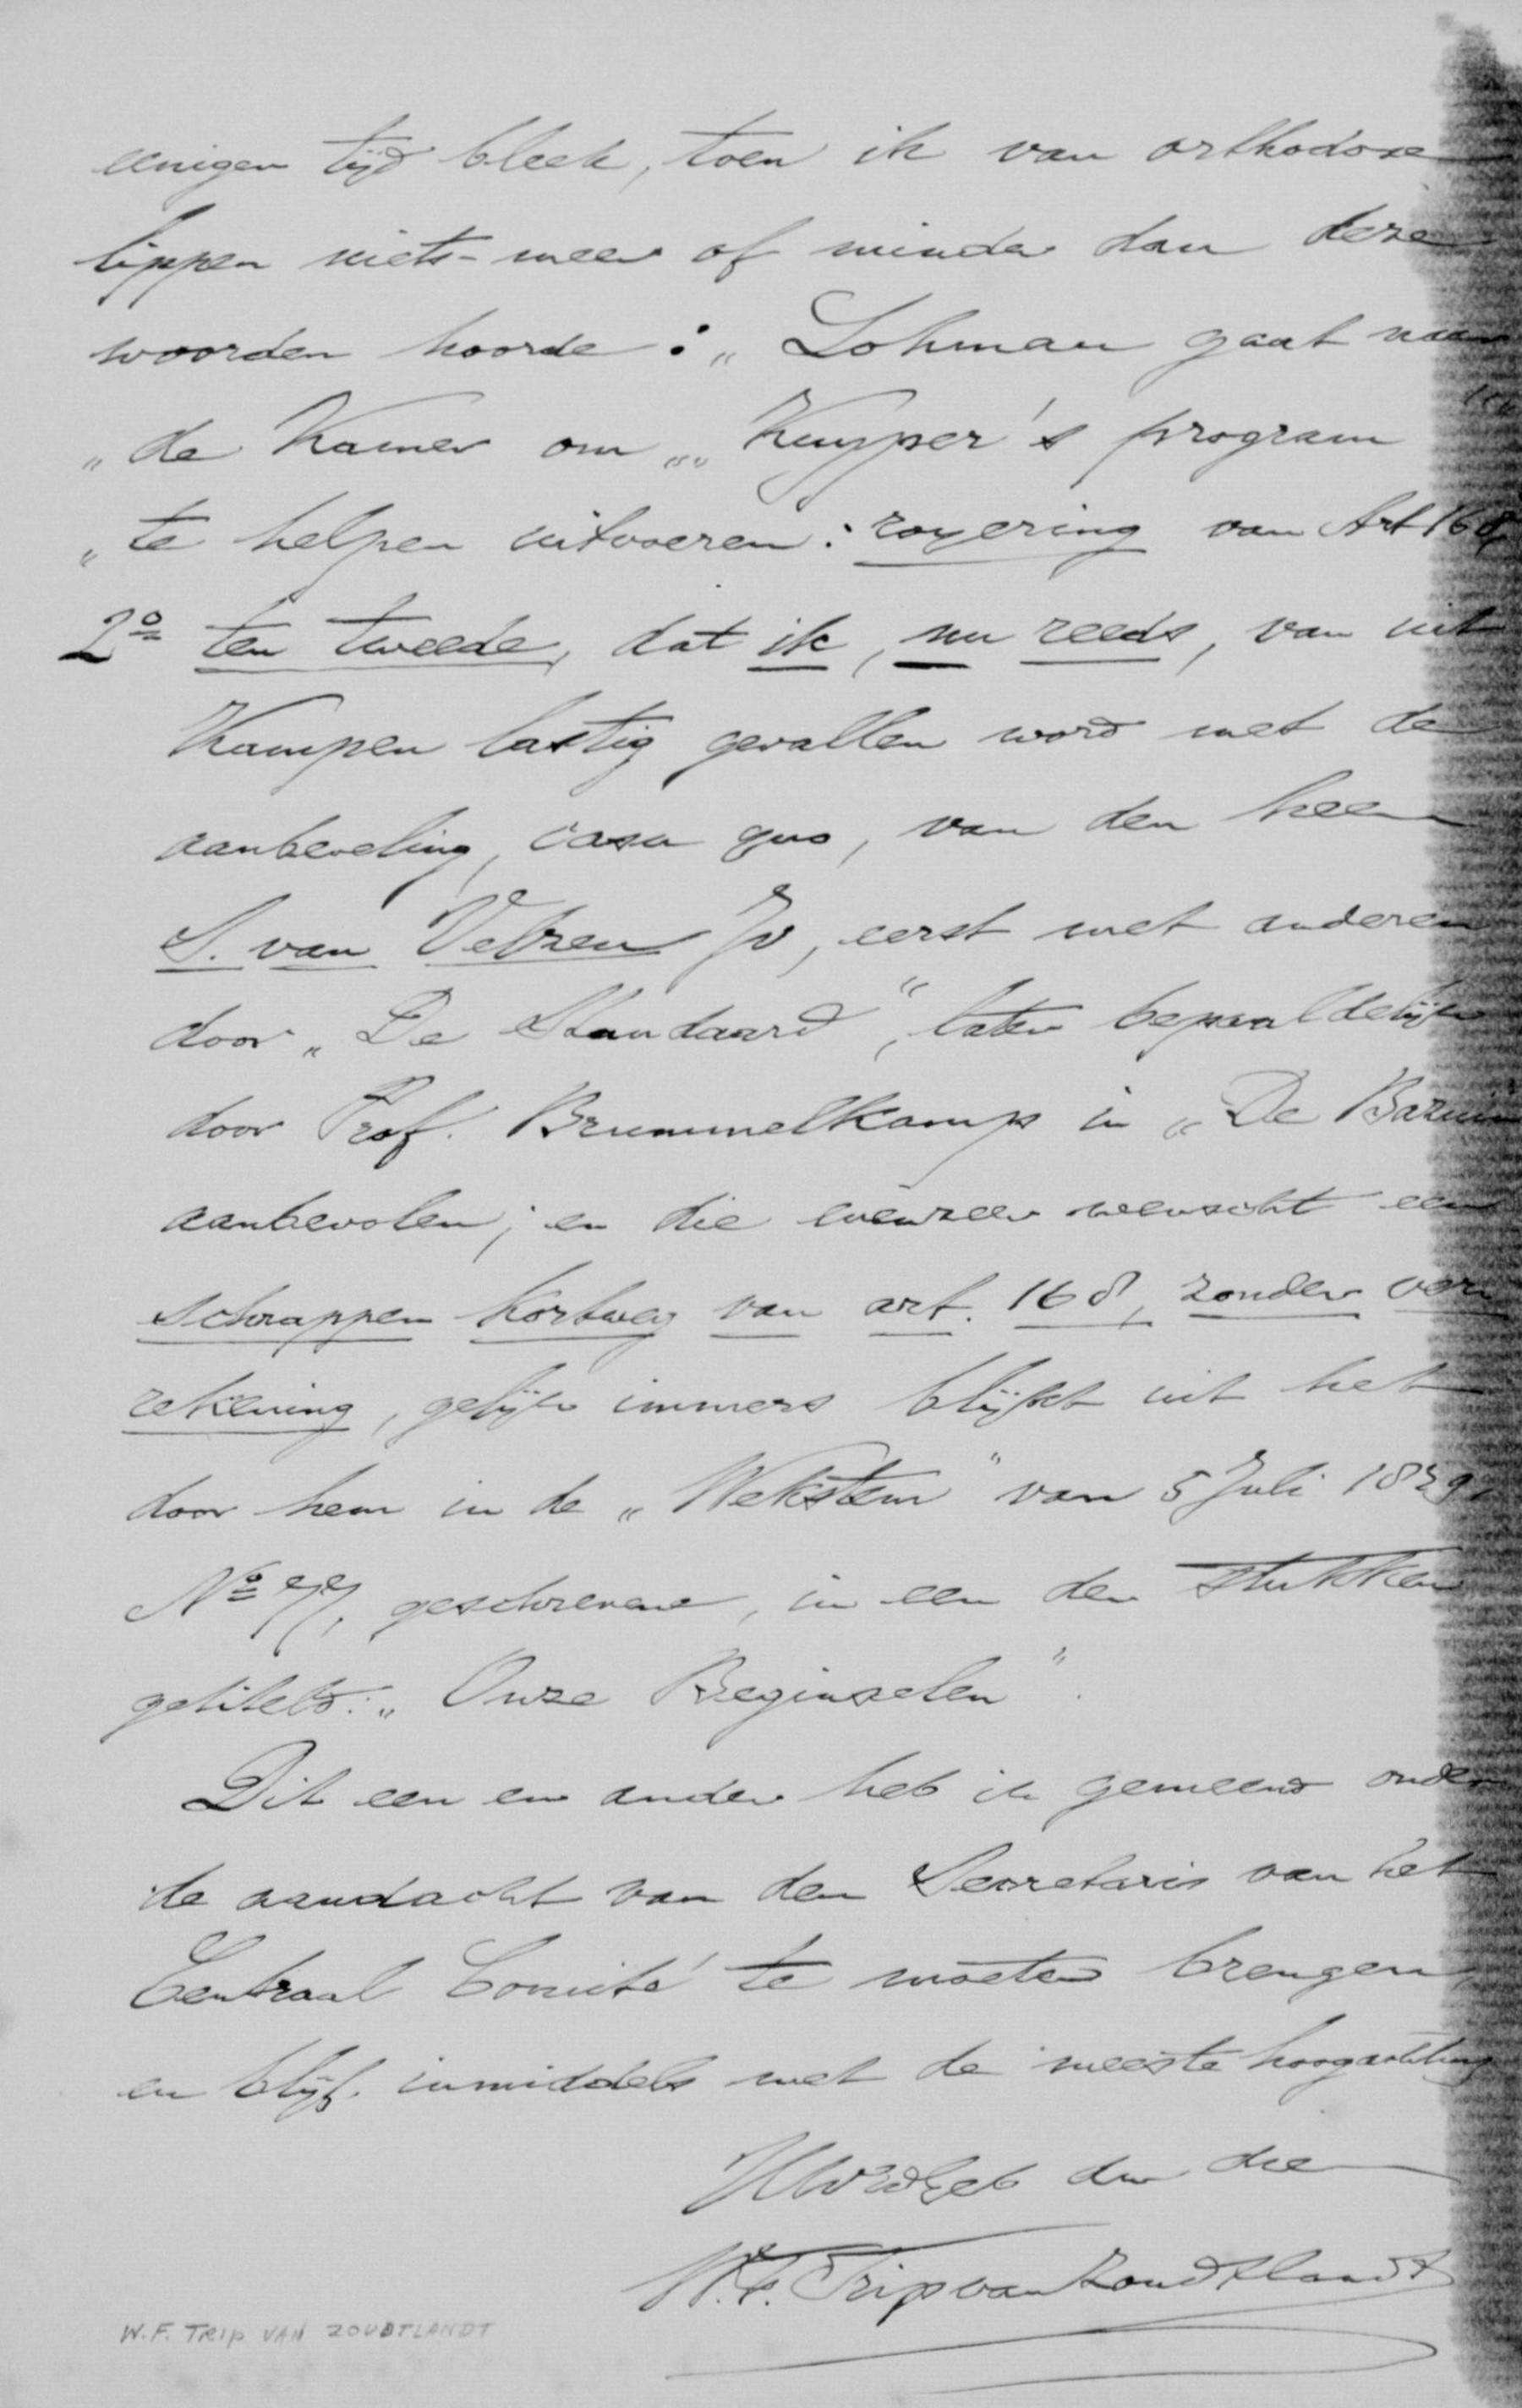 eenigen tijd bleek, toen ik van orthodoxe
lippen niets-meer of minder dan deze
woorden hoorde: „Lohman gaat naar
„de Kamer om „„Kuyper's program""
„te helpen uitvoeren: royering van Art 168,
2º ten tweede, dat ik, nu reeds, van uit
Kampen lastig gevallen word met de
aanbeveling, casu quo, van den heer
S. van Velzen Jr, eerst met anderen
door „De Standaard", later bepaaldelijk
door Prof. Brummelkamp in „De Bazuin
aanbevolen; en die evenzeer wenscht een
schrappen kortweg van art. 168, zonder ver
rekening, gelijk immers blijkt uit het
door hem in de „Wekstem" van 5 Juli 1879,
Nº geschrevene, in een der stukken
getiteld: „Onze Beginselen".
Dit een en ander heb ik gemeend onder
de aandacht van den Secretaris van het
Centraal Comité te moeten brengen,
en blijf inmiddels met de meeste hoogachting
UWEdGeb dw die
W.F. Trip van Zoudtlandt
W.F. TRIP VAN ZOUDTLANDT